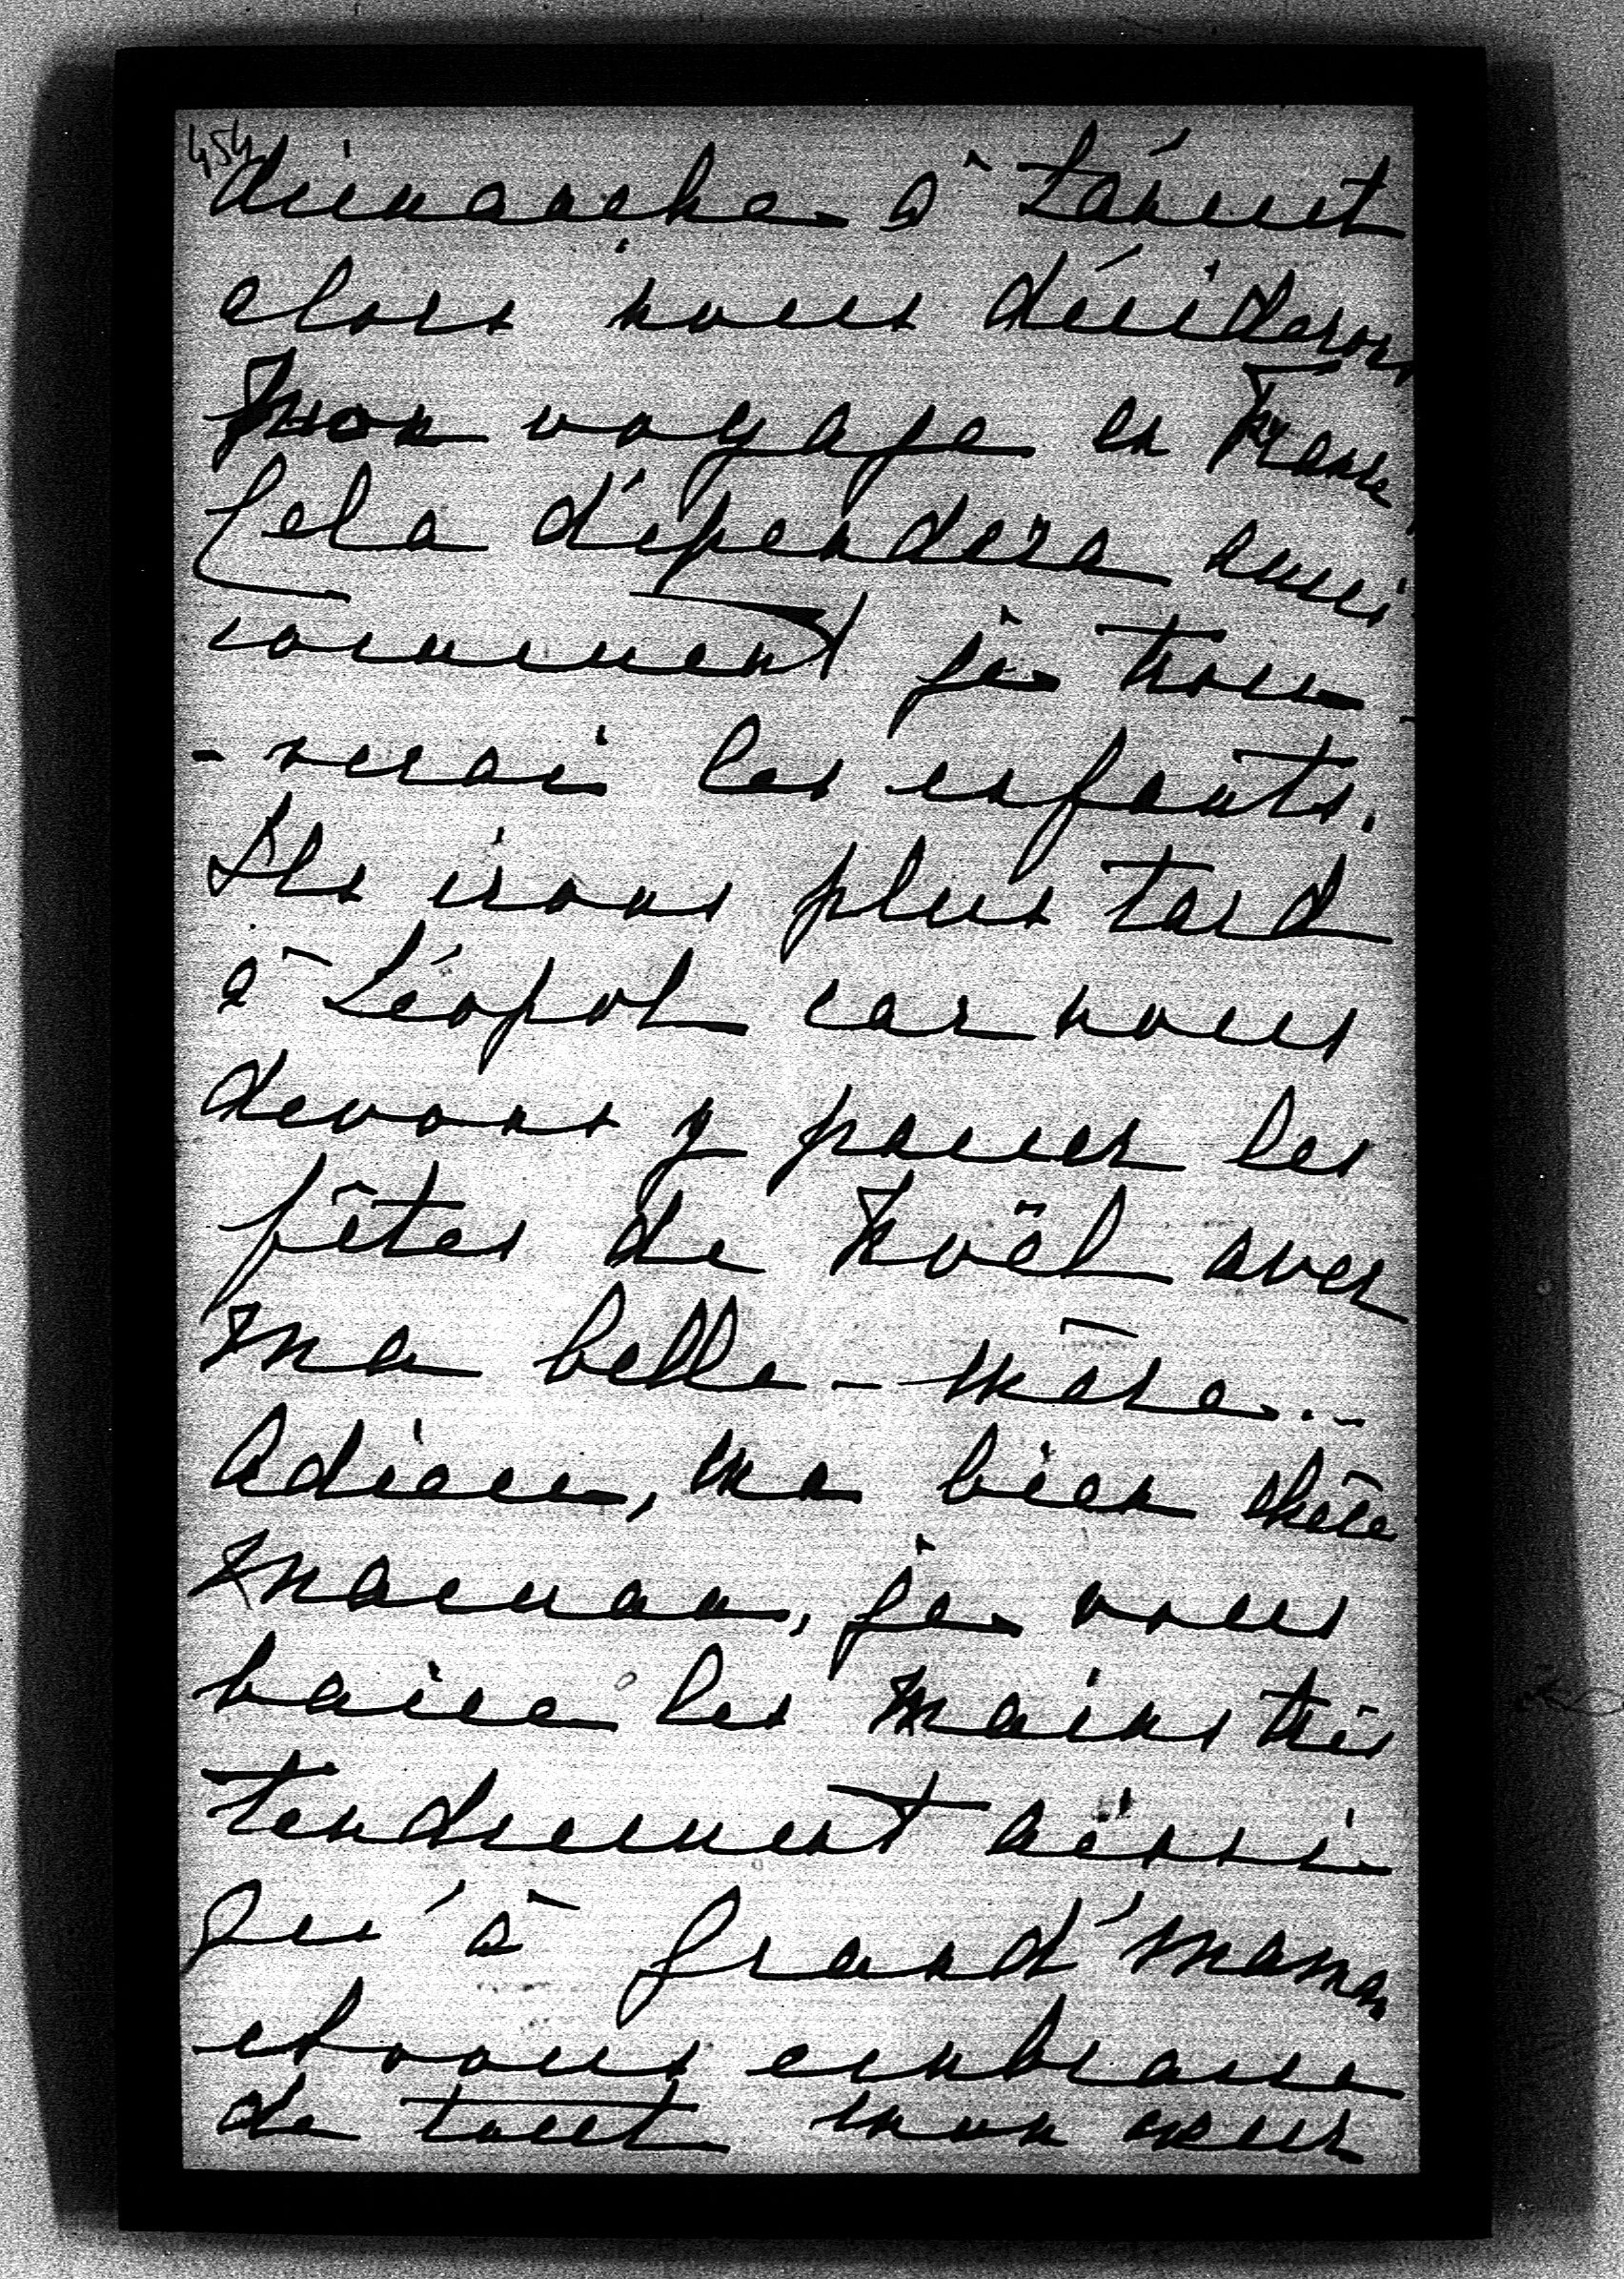 454
dimanche à Lancut
alors nous déciderons
mon voyage en France,
Cela dépendera aussi
comment je trou-
-verai les enfants.
Ils irons plus tard
à Léopol car nous
devons y passer les
fêtes de Noël avec
ma belle-mère.-
Adieu, ma bien chère
Maman, je vous
baise les mains très
tendrement aussi
qu'à Grand'maman
et vous embrasse
de tout mon cœur